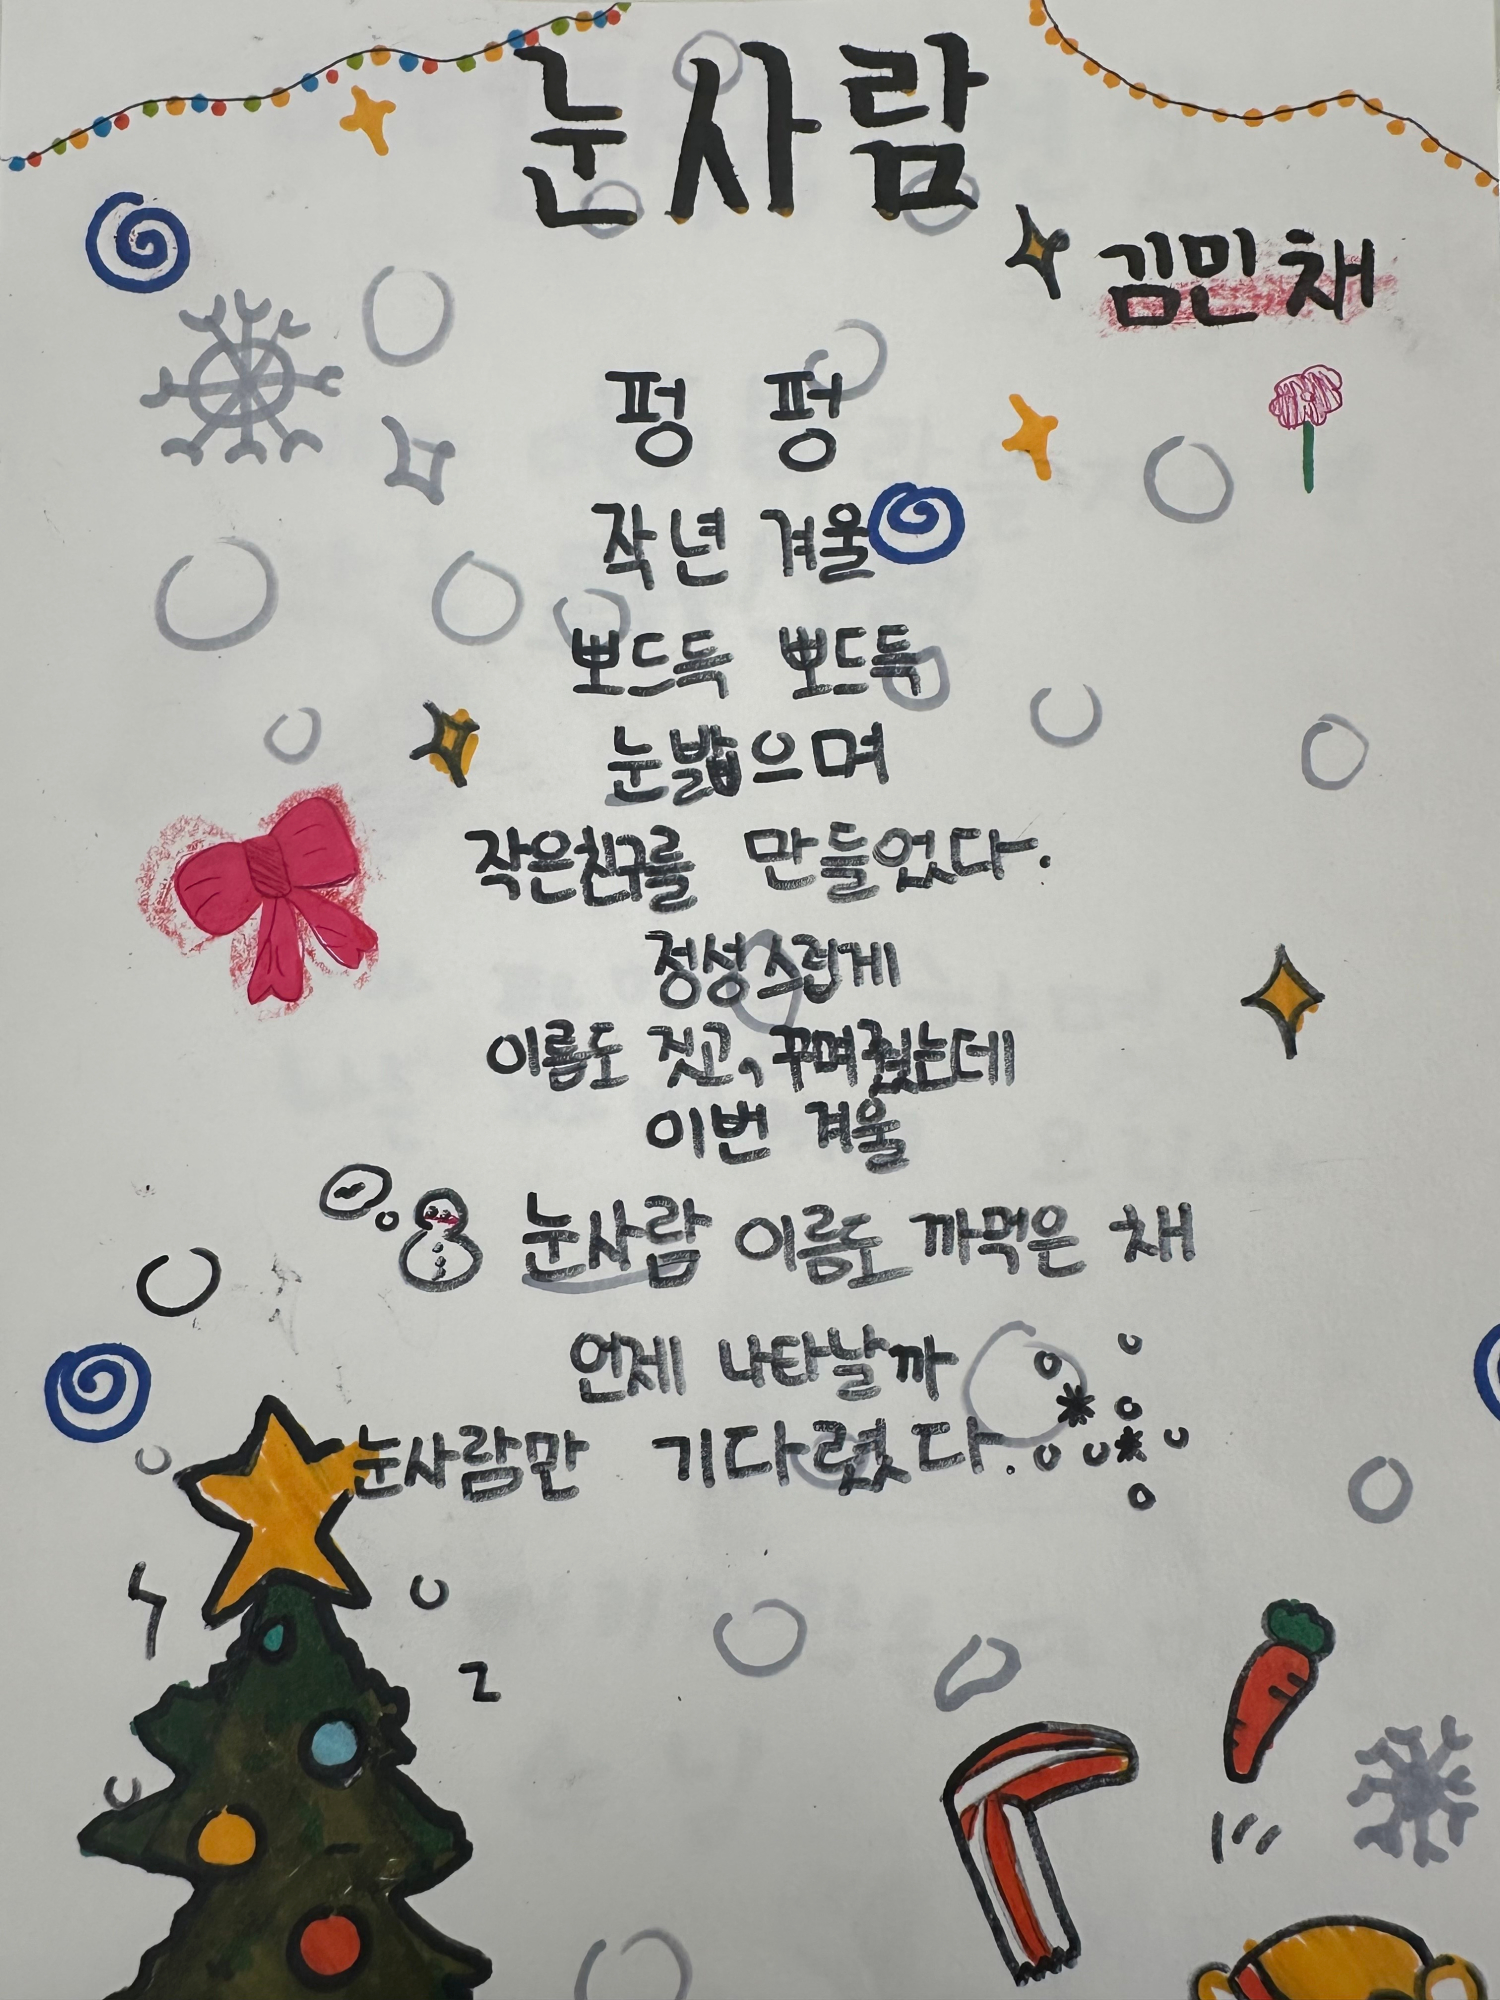 눈사람
김민채
펑 펑
작년 겨울
뽀드득 뽀드득
눈밟으며
작은친구를 만들었다.
정성스럽게
이름도 짓고, 꾸며줬는데
이번 겨울
눈사람 이름도 까먹은 채
언제 나타날까
눈사람만 기다렸다.